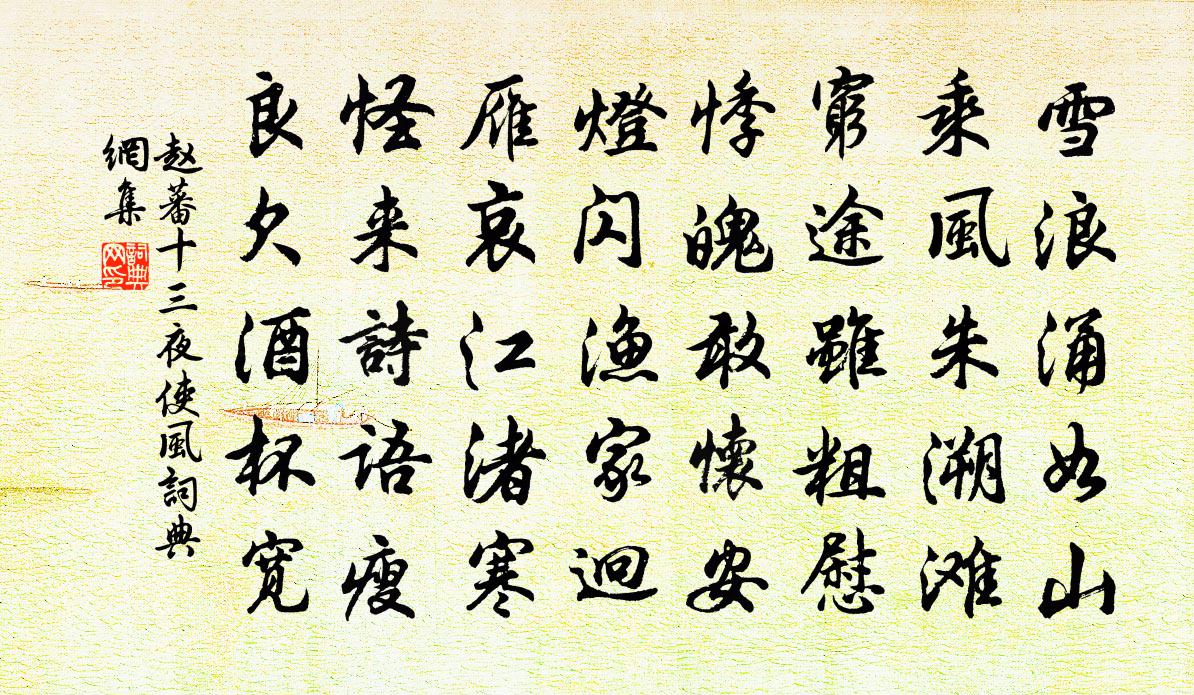 雪浪涌如山
乘風朱溯滩
窮途雖粗慰
悸魄敢懷安
燈闪渔家迥
雁哀江渚寒
怪来詩語瘦
良久酒杯寬
赵蕃十三夜使風詞典
網集
詞典网印